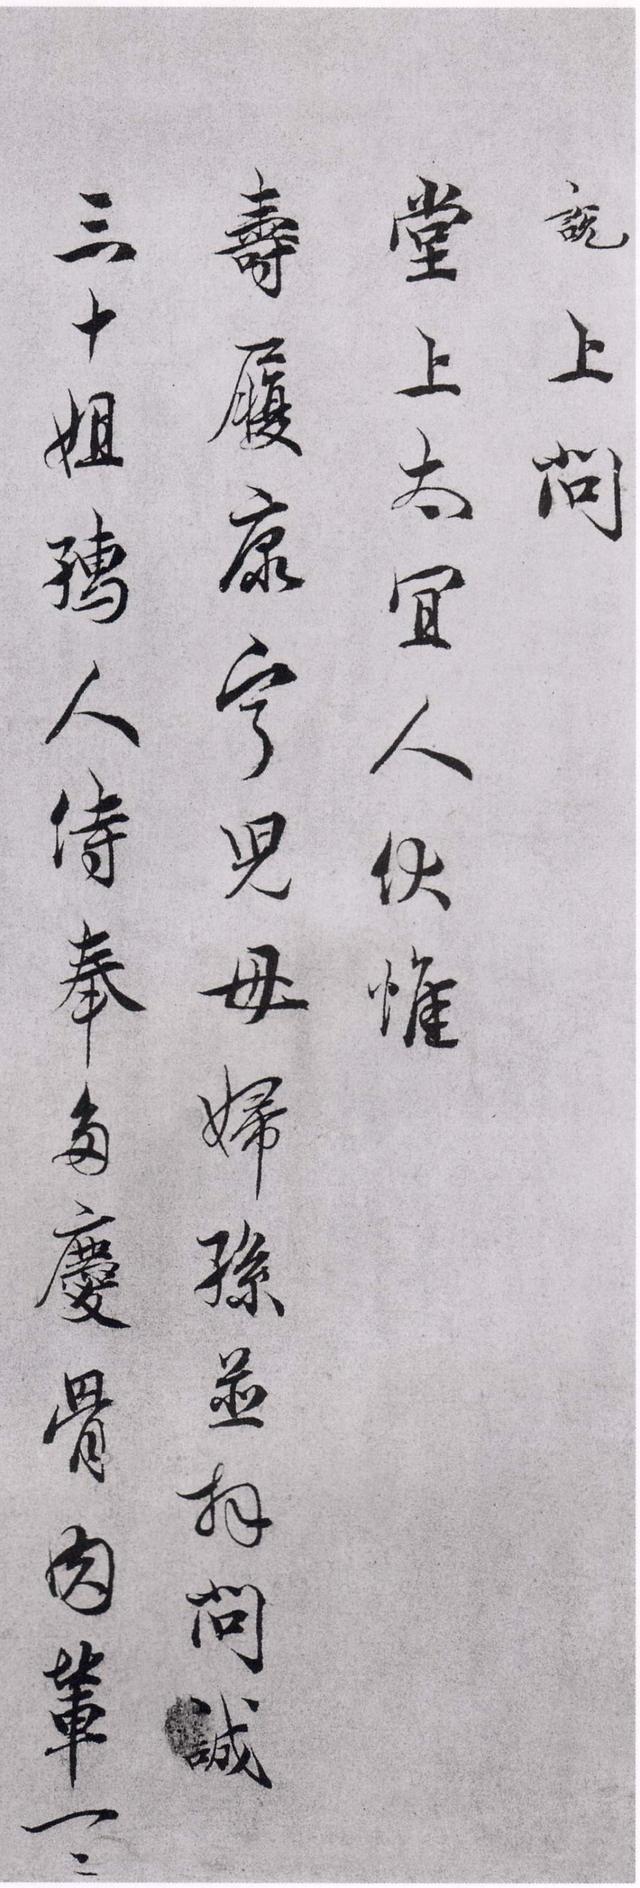 説上問
堂上太宜人伏惟
壽履康寧児母婦孫並拜問誠
三十姐孺人侍奉多慶骨肉輩一一